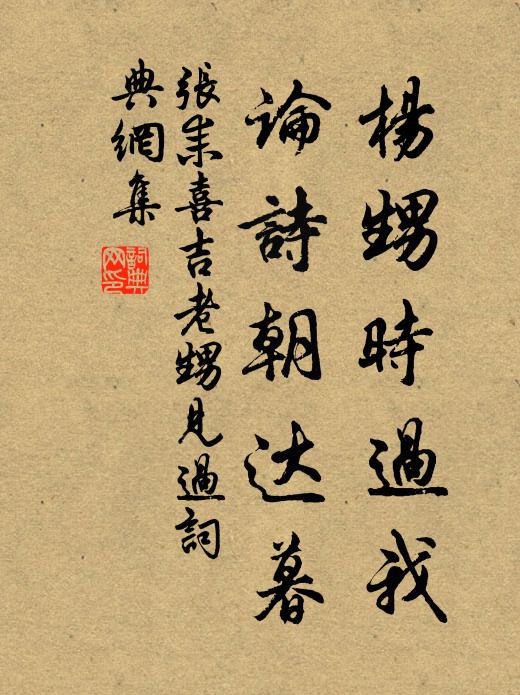 楊甥時過我
論詩朝达暮
張耒喜吉老甥見過詞
典網集
詞典
网印